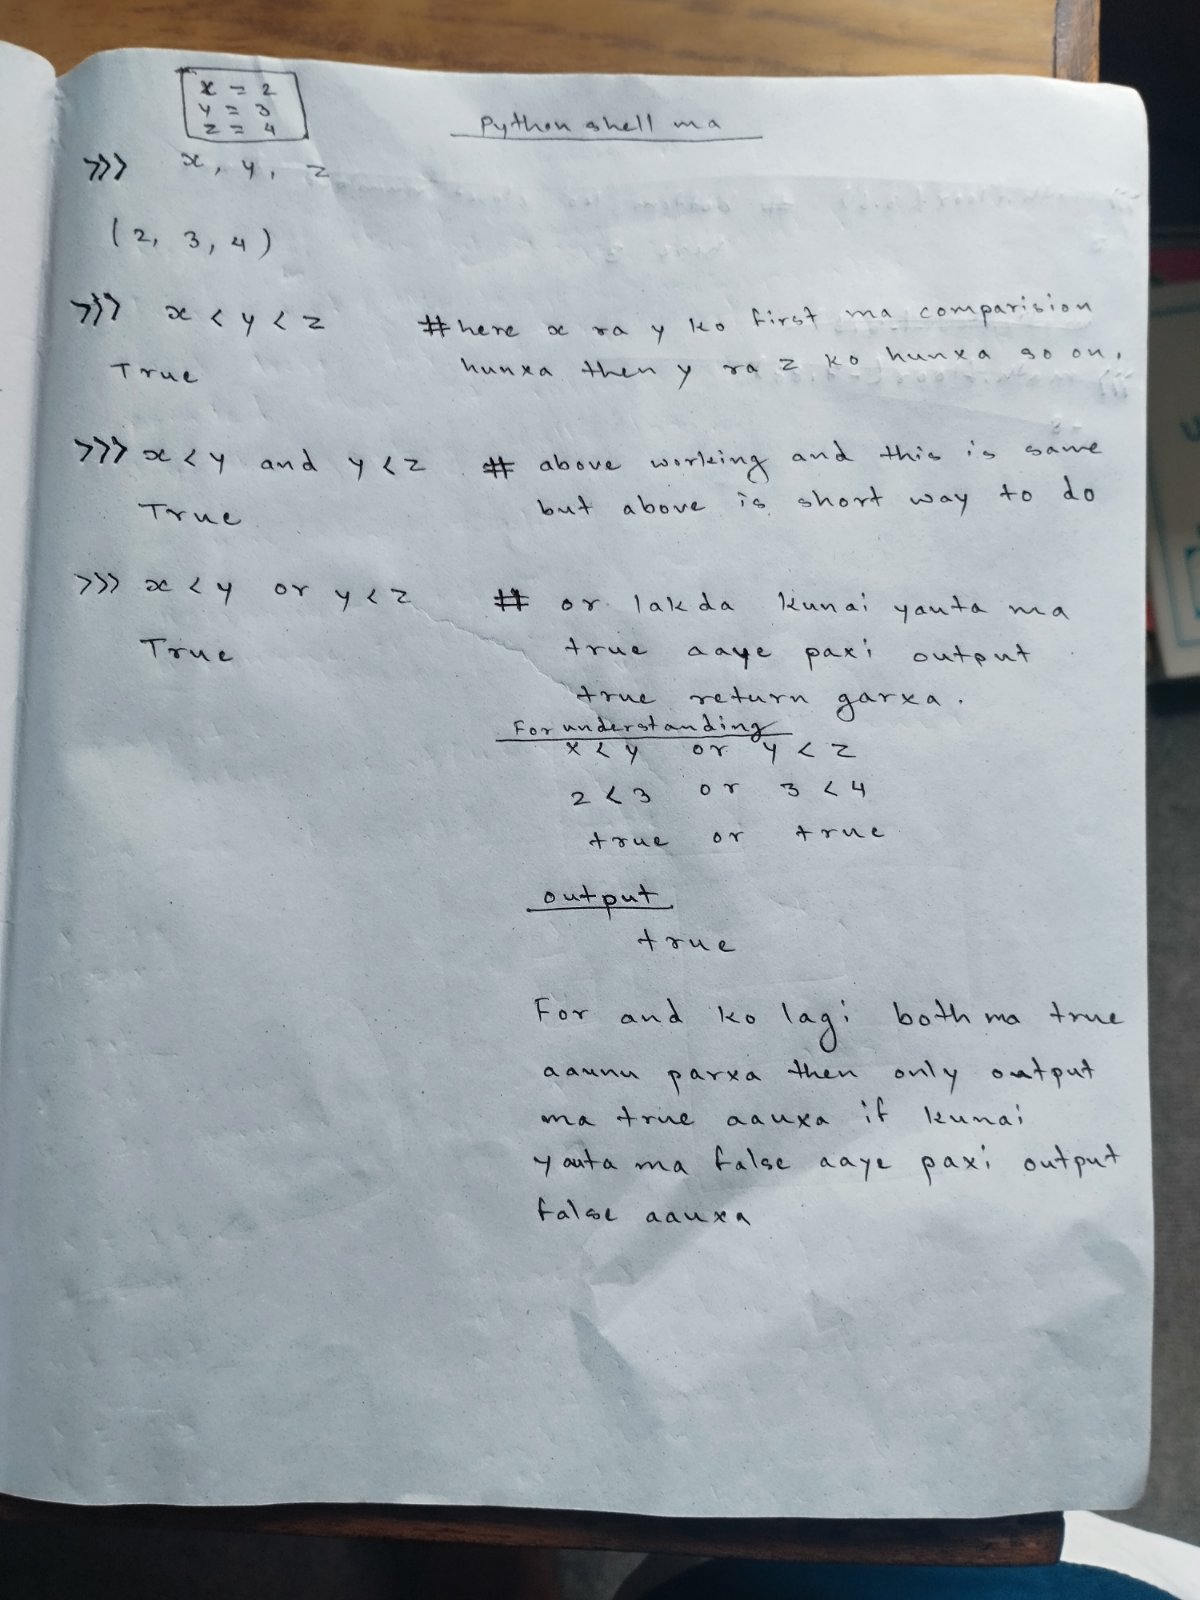 x = 2
y = 3
z = 4
Python shell ma
>>> x, y, z
(2, 3, 4)
>>> x < y < z # here x ra y ko first ma comparision
True hunxa then y ra z ko hunxa so on.
>>> x < y and y < z # above working and this is same
True but above is short way to do
>>> x < y or y < z # or lakda kunai yauta ma
True true aaye paxi output
true return garxa.
For understanding
x < y or y < z
2 < 3 or 3 < 4
true or true
output
true
For and ko lagi both ma true
aaunu parxa then only output
ma true aauxa if kunai
yauta ma false aaye paxi output
false aauxa